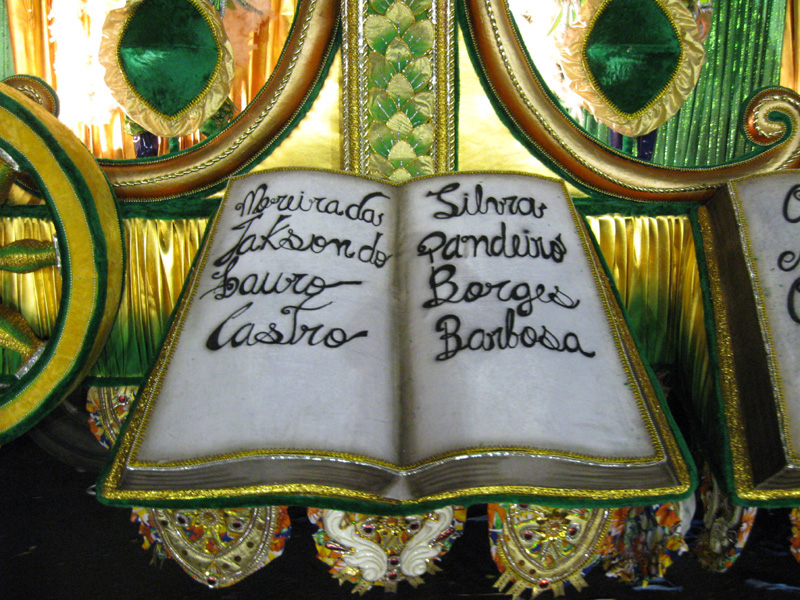 Moreira da Silva
Jakson do Pandeiro
Lauro Borges
Castro Barbosa